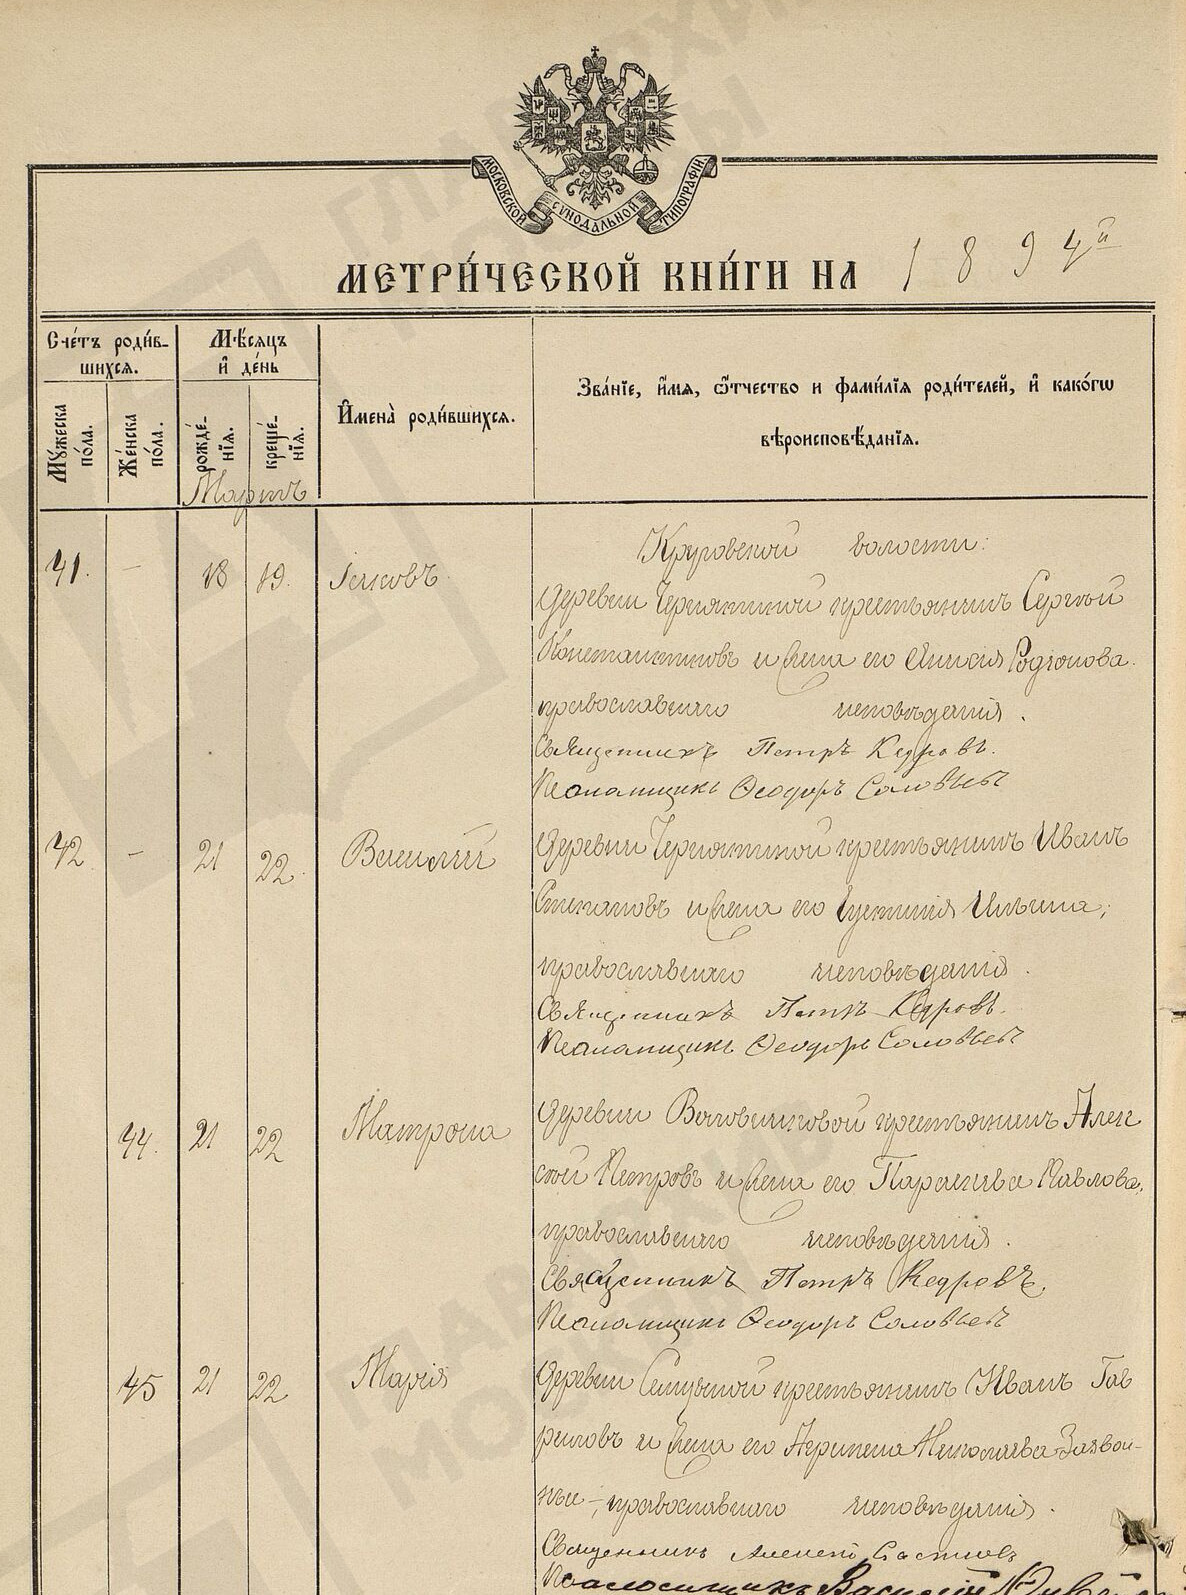 МОСКОВСКОЙ СѴНОДАЛЬНОЙ ТИПОГРАФІИ
МЕТРИ́ЧЕСКОЙ КНИ́ГИ НА 1894й
Сче́тъ роди́в-
шихся.
Мѣ́сяцъ
и҆ де́нь
И҆мена̀ роди́вшихся.
Зва́нїе, и҆́мя, ѻ҆́тчество и фами́лїя роди́телей, и҆ како́гѡ
вѣроисповѣ́данїя.
Мꙋ́жеска
по́ла.
Же́нска
по́ла.
рожде́-
нїя.
креще́-
нїя.
Мартъ
Круговской волости:
41. – 18 19. Іаковъ
деревни Чернятиной крестьянинъ Сергѣй
Константиновъ и жена его Анисія Родіонова
православнаго исповѣданія.
Священникъ Петръ Кедровъ.
Псаломщикъ Ѳеодоръ Соловьевъ
42 – 21 22. Василій
деревни Чернятиной крестьянинъ Иванъ
Степановъ и жена его Іустинія Ильина;
православнаго исповѣданія.
Священникъ Петръ Кедровъ.
Псаломщикъ Ѳеодоръ Соловьевъ
44. 21 22 Матрона
деревни крестьянинъ Алек
сѣй Петровъ и жена его Параскева Павлова,
православнаго исповѣданія.
Священникъ Петръ Кедровъ.
Псаломщикъ Ѳеодоръ Соловьевъ
45 21 22 Марія
деревни крестьянинъ Иванъ Гав
риловъ и жена его Николаева
православнаго исповѣданія.
Священникъ Алексей
Псаломщикъ Василій